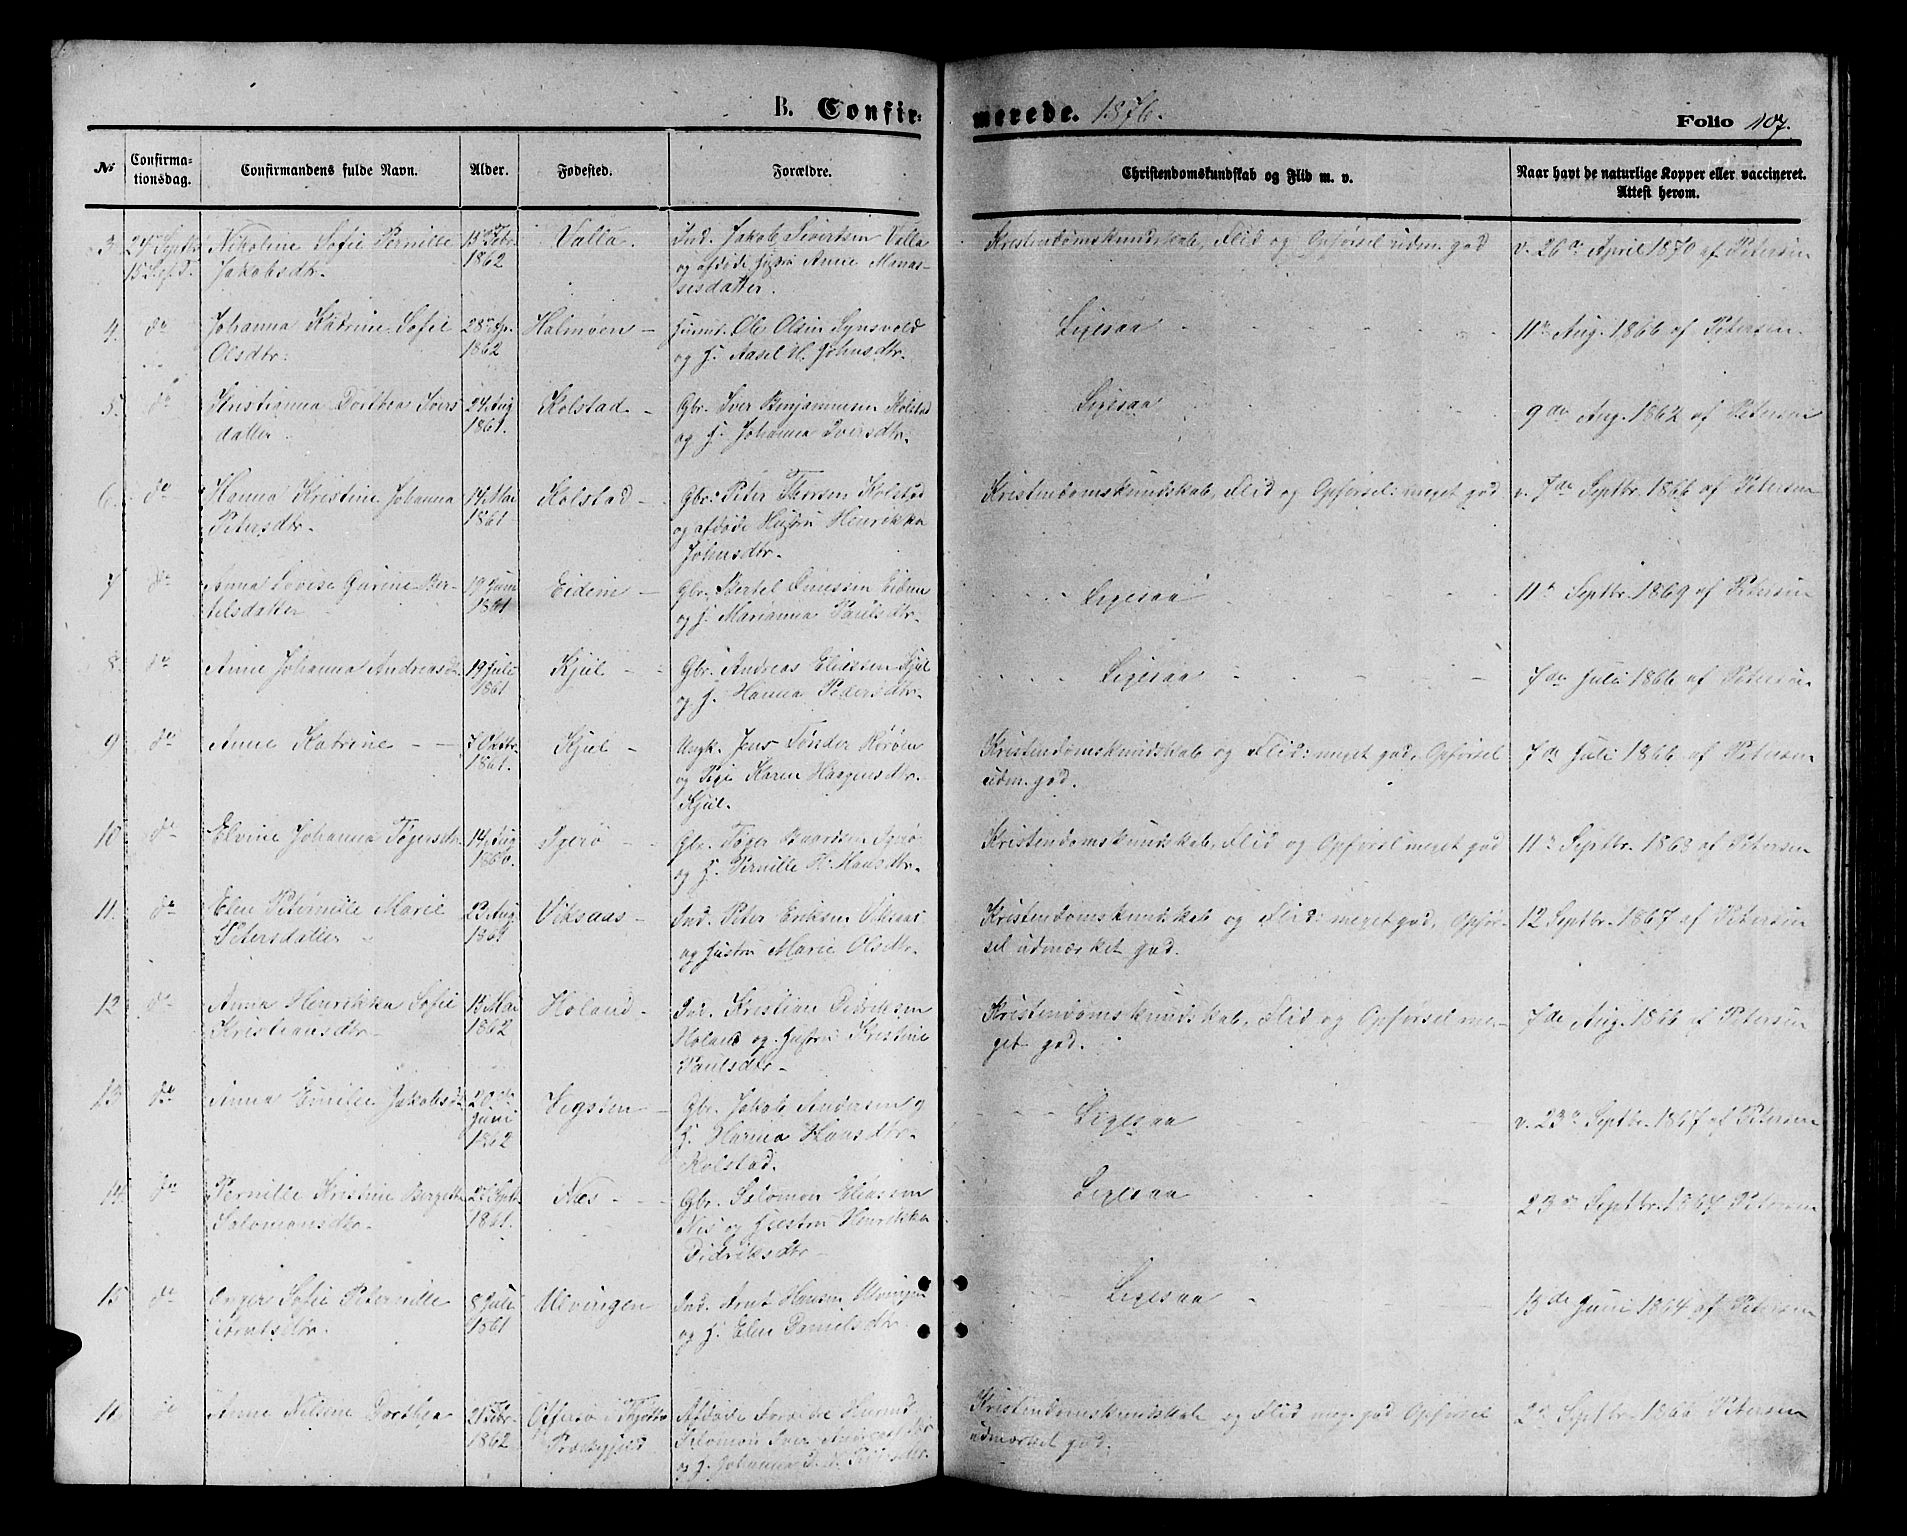 B. Confir-
merede. 1876.
Folio 107.
№
Confirma-
tionsdag.
Confirmandens fulde Navn.
Alder.
Fødested.
Forældre.
Christendomskundskab og Flid m. v.
Naar havt de naturlige Kopper eller vaccineret.
Attest herom.
3 24de Septbr Nikoline Sofie Pernille 13de Febr Valla. Ind. Jakob Sivertsen Valla Kristendomskundskab, Flid og Opførsel udm. god v. 26de April 1870 af Petersen
Jakobsdtr. 1862 og afdøde Hustru Anne Manas-
sesdatter.
4. do Johanna Katrine Sofie 28de Apr. Holmøen - Huusmd. Ole Olsen Synsvold Ligesaa 11te Aug. 1866 af Petersen.
Olsdtr. 1862 og H. Aasel M. Johnsdtr.
5. do Kristianna Dorthea Ivers 24 Aug Kolstad - Gbr. Iver Benjaminsen Kolstad Ligesaa 9de Aug. 1862 af Petersen
datter. 1861. og H. Johanna Iversdtr.
6. do Hanna Kristine Johanna 14. Mai Kolstad - Gbr. Peter Thorsen Kolstad Kristendomskundskab, Flid og Opførsel: meget god v. 7de Septbr. 1866 af Petersen
Petersdtr. 1861. og afdøde Hustru Henrikka
Johnsdtr.
7 do Anna Lovise Gurine Ber- 19 Juni Eidem - Gbr. Bertel Eidem Ligesaa 11te Septbr. 1869 af Petersen
telsdatter 1861 og H. Marianna Paulsdtr.
8. do Anne Johanna Andreasdtr 19 Juli Kjul - Gbr. Andreas Eliassen Kjul Ligesaa 7de Juli 1866 af Petersen
1861 og H. Hanna Pedersdtr.
9 do Anne Katrine - - 7 Oktbr. Kjul - Ungk. Jens Tønder Rørøen Kristendomskundskab og Flid: meget god, Opførsel 7de Juli 1866 af Petersen
1861. og Pige Karen Haagensdtr. udm. god.
Kjul.
10 do Elvine Johanna Tøgersdtr 14 Aug Igerø - Gbr. Tøger Baardsen Igerø Kristendomskundskab, Flid og Opførsel meget god 11te Septbr. 1863 af Petersen
1860. og H. Pernille K. Hansdtr.
11. do Elen Peternille Marie 22 Aug. Viksaas - Ind. Peter Eriksen Viksaas Kristendomskundskab og Flid: meget god, Opfør- 12 Septbr. 1867 af Petersen
Petersdatter 1861 og Hustru Marie Olsdtr. sel udmærket god.
12 do Anna Henrikka Sofie 13. Mai Holand - Ind. Kristian Didriksen Kristendomskundskab, Flid og Opførsel me- 7de Aug. 1866 af Petersen
Kristiansdtr. 1862 Holand og Hustru Kristine get god.
Paulsdtr.
13 do Anna Emilie Jakobsdtr 20de Gbr. Jakob Andersen og Ligesaa v. 23de Septbr. 1867 af Petersen
Juni H. Hanna Hansdtr.
1862 Kolstad.
14. do Pernille Kristine Bergitte Næs - - Gbr. Salomon Eliassen Ligesaa 23de Septbr. 1867 Petersen
Salomonsdtr. 1861. Næs og Hustru Henrikka
Didriksdtr.
15 do Inger Sofie Peternille 8 Juli Ulvingen Ind. Arnt Hansen Ulvingen Ligesaa 13de Juni 1864 af Petersen
Arntsdtr. 1861 og H. Elen Danielsdtr.
16 do Anne Nilsine Dorthea 21 Febr. Offersø i Afdøde Forældre Huusmd. Kristendomskundskab og Flid meg. god Opførsel Septbr. 1866 Petersen
1862 Præstegjeld Salomon Iver udmærket god.
og H. Johanna